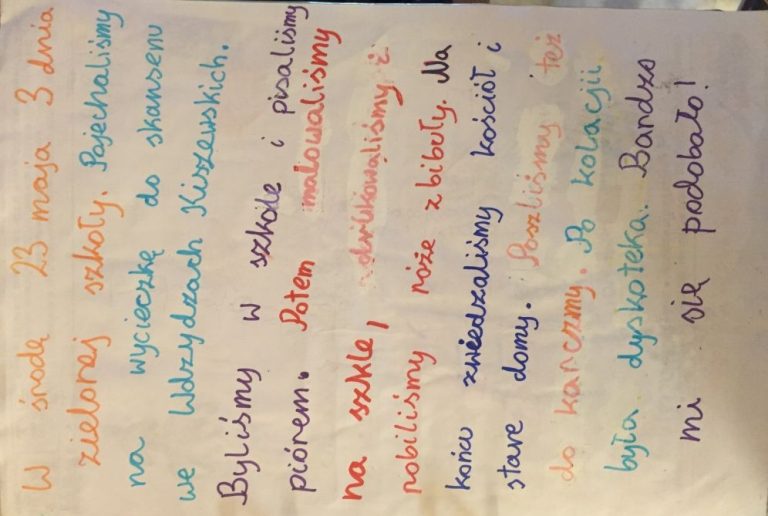 W środę 23 maja 3 dnia
zielonej szkoły. Pojechaliśmy
na wycieczkę do skansenu
we Wdzydzach Kiszewskich.
Byliśmy w szkole i pisaliśmy
piórem. Potem malowaliśmy
na szkle, drukowaliśmy i
robiliśmy róże z bibuły. Na
końcu zwiedzaliśmy kościół i
stare domy. Poszliśmy też
do karczmy. Po kolacji
była dyskoteka. Bardzo
mi się podobało!